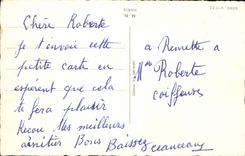 Chère Roberte
je t'envoie cette
petite carte en
espérant que cela
te fera plaisir
Recois Mes meilleurs
amitiés Bons Baisers
a Remettre a
Mme Roberte
coiffeuse